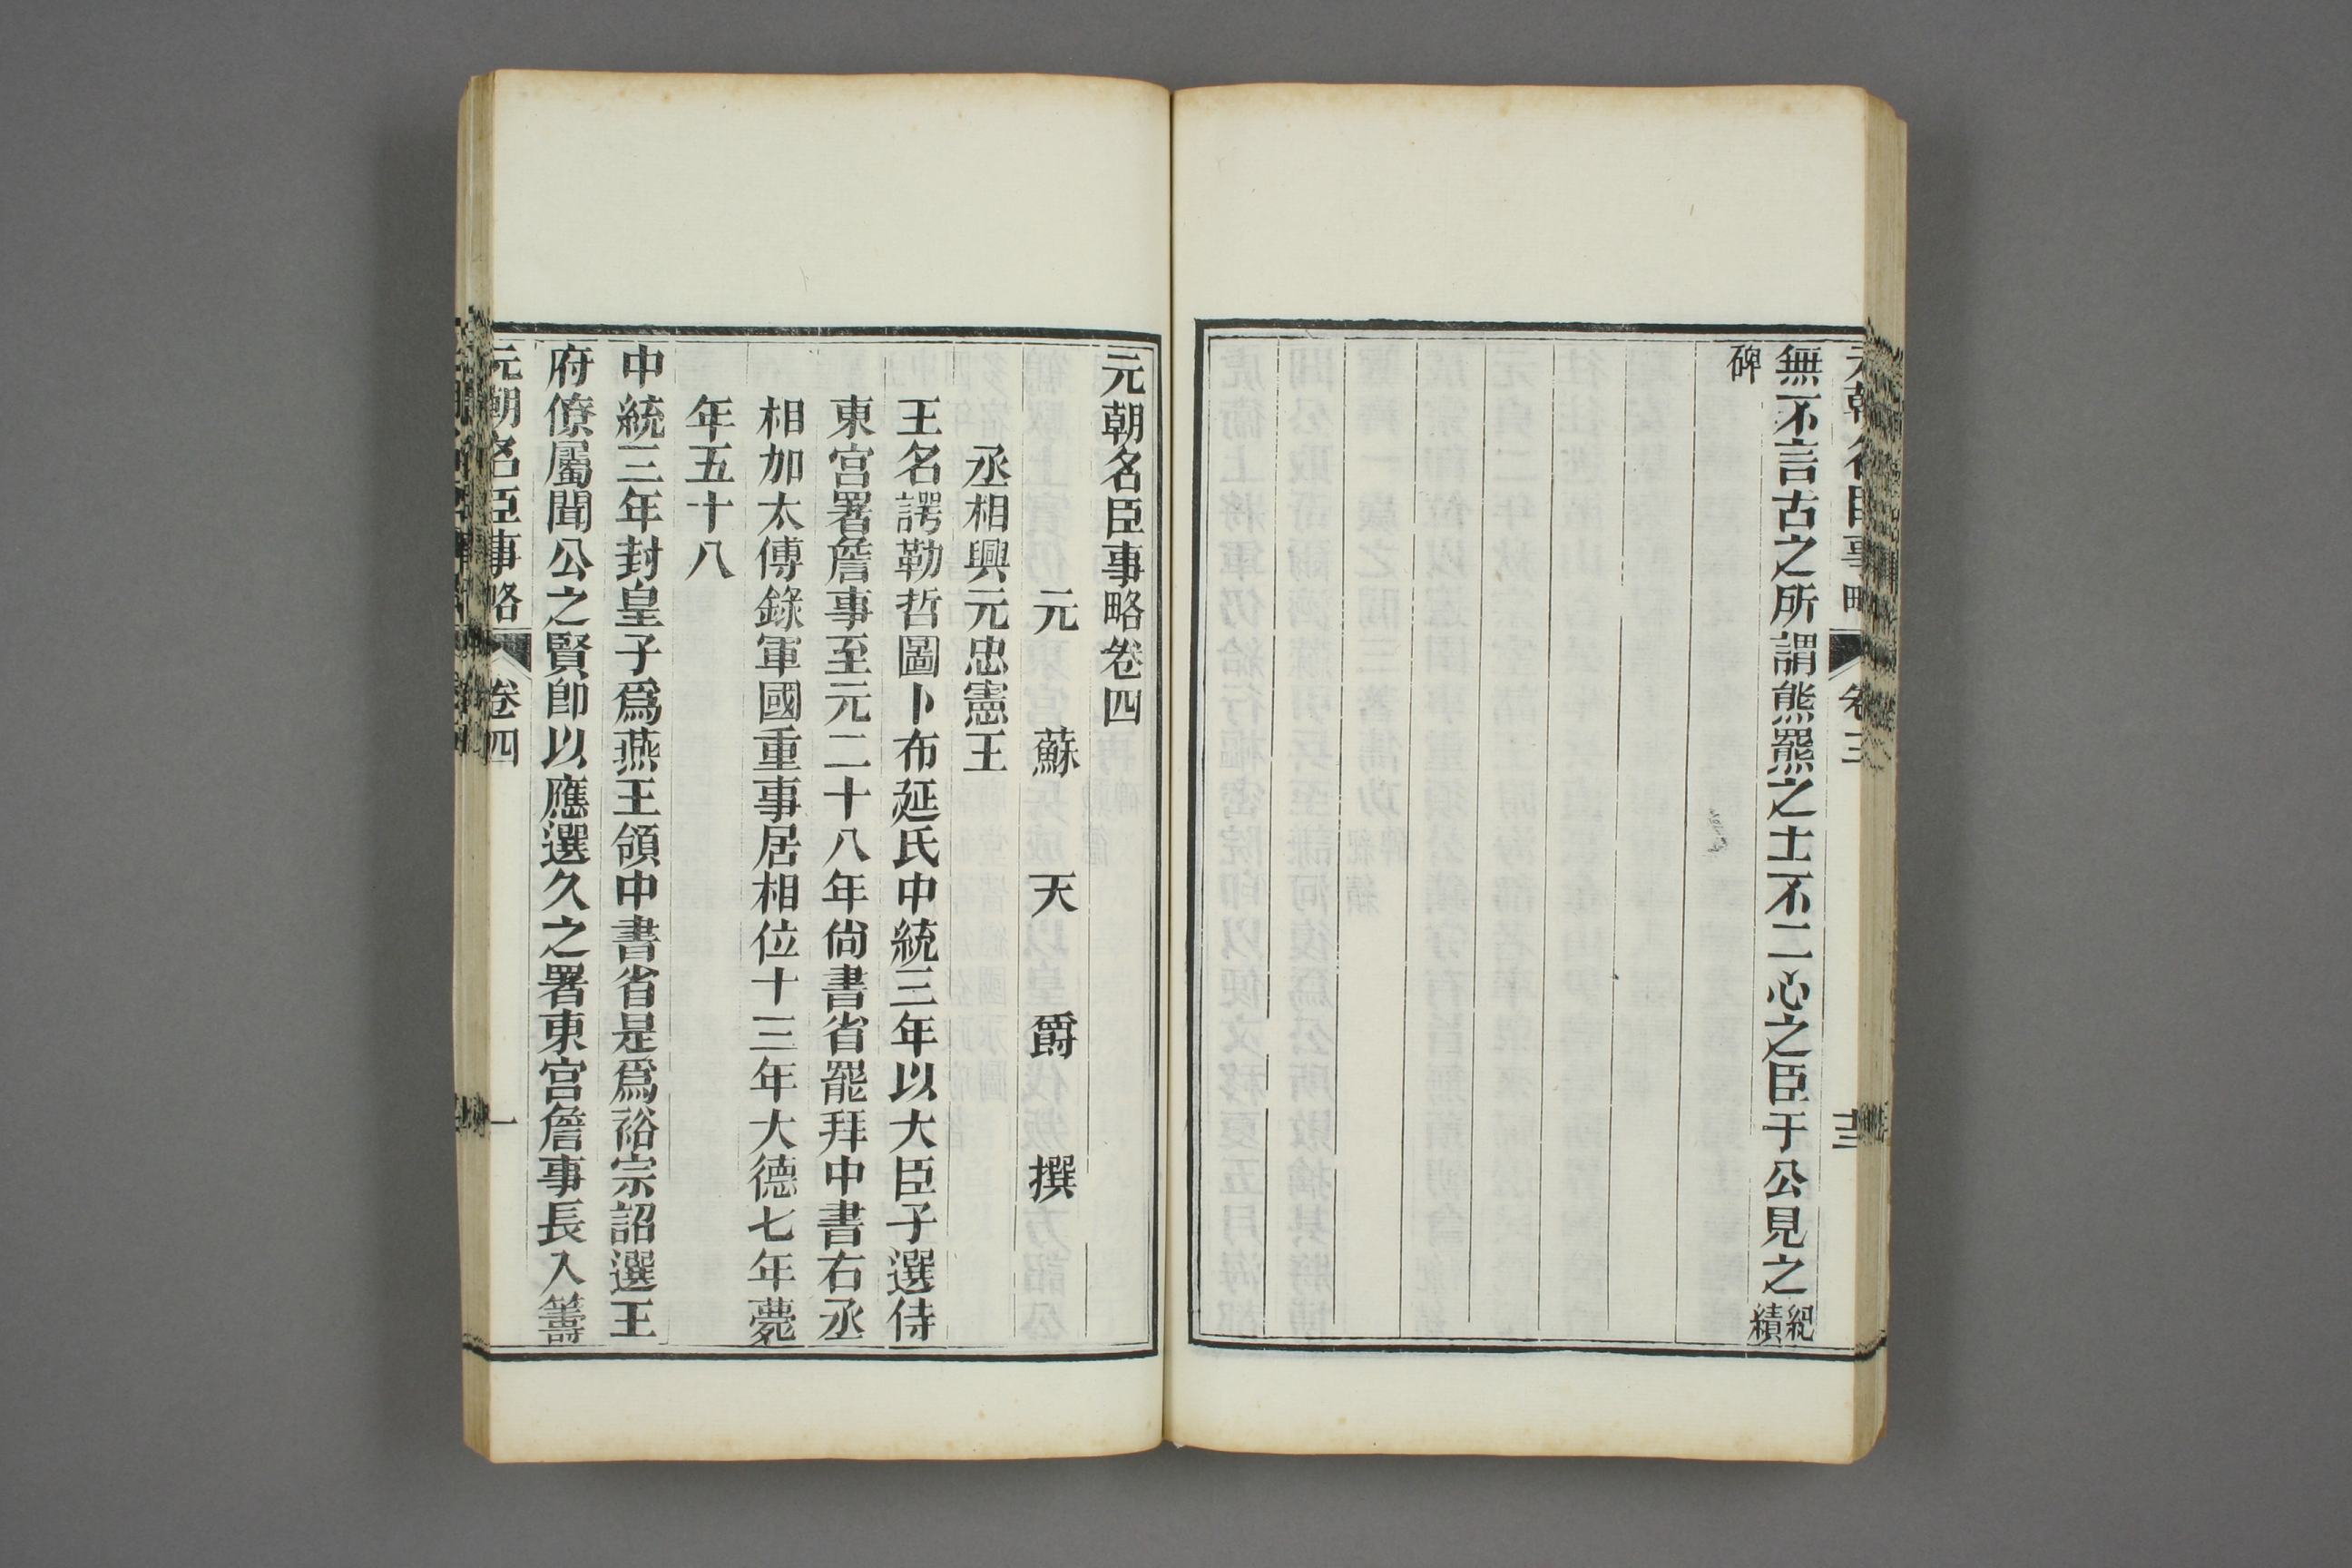 元朝名臣事略 卷三 
無不言古之所謂熊羆之士不二心之臣于公見之紀績
碑
元朝名臣事略卷四
元 蘇 天 爵 撰
丞相興元忠憲王
王名諤勒哲圖卜布延氏中統三年以大臣子選侍
東宮署詹事至元二十八年尙書省罷拜中書右丞
相加太傅錄軍國重事居相位十三年大德七年薨
年五十八
中統三年封皇子爲燕王領中書省是爲裕宗詔選王
府僚屬聞公之賢卽以應選久之署東宮詹事長入籌
元朝名臣事略 卷四 一